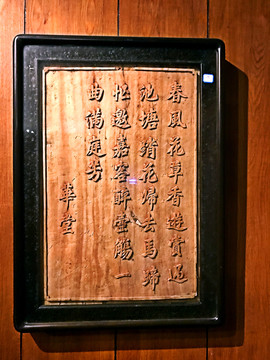 春風花草香遊賞過
池塘踏花歸去馬蹄
忙邀嘉客醉壺觴一
曲滿庭芳
華堂